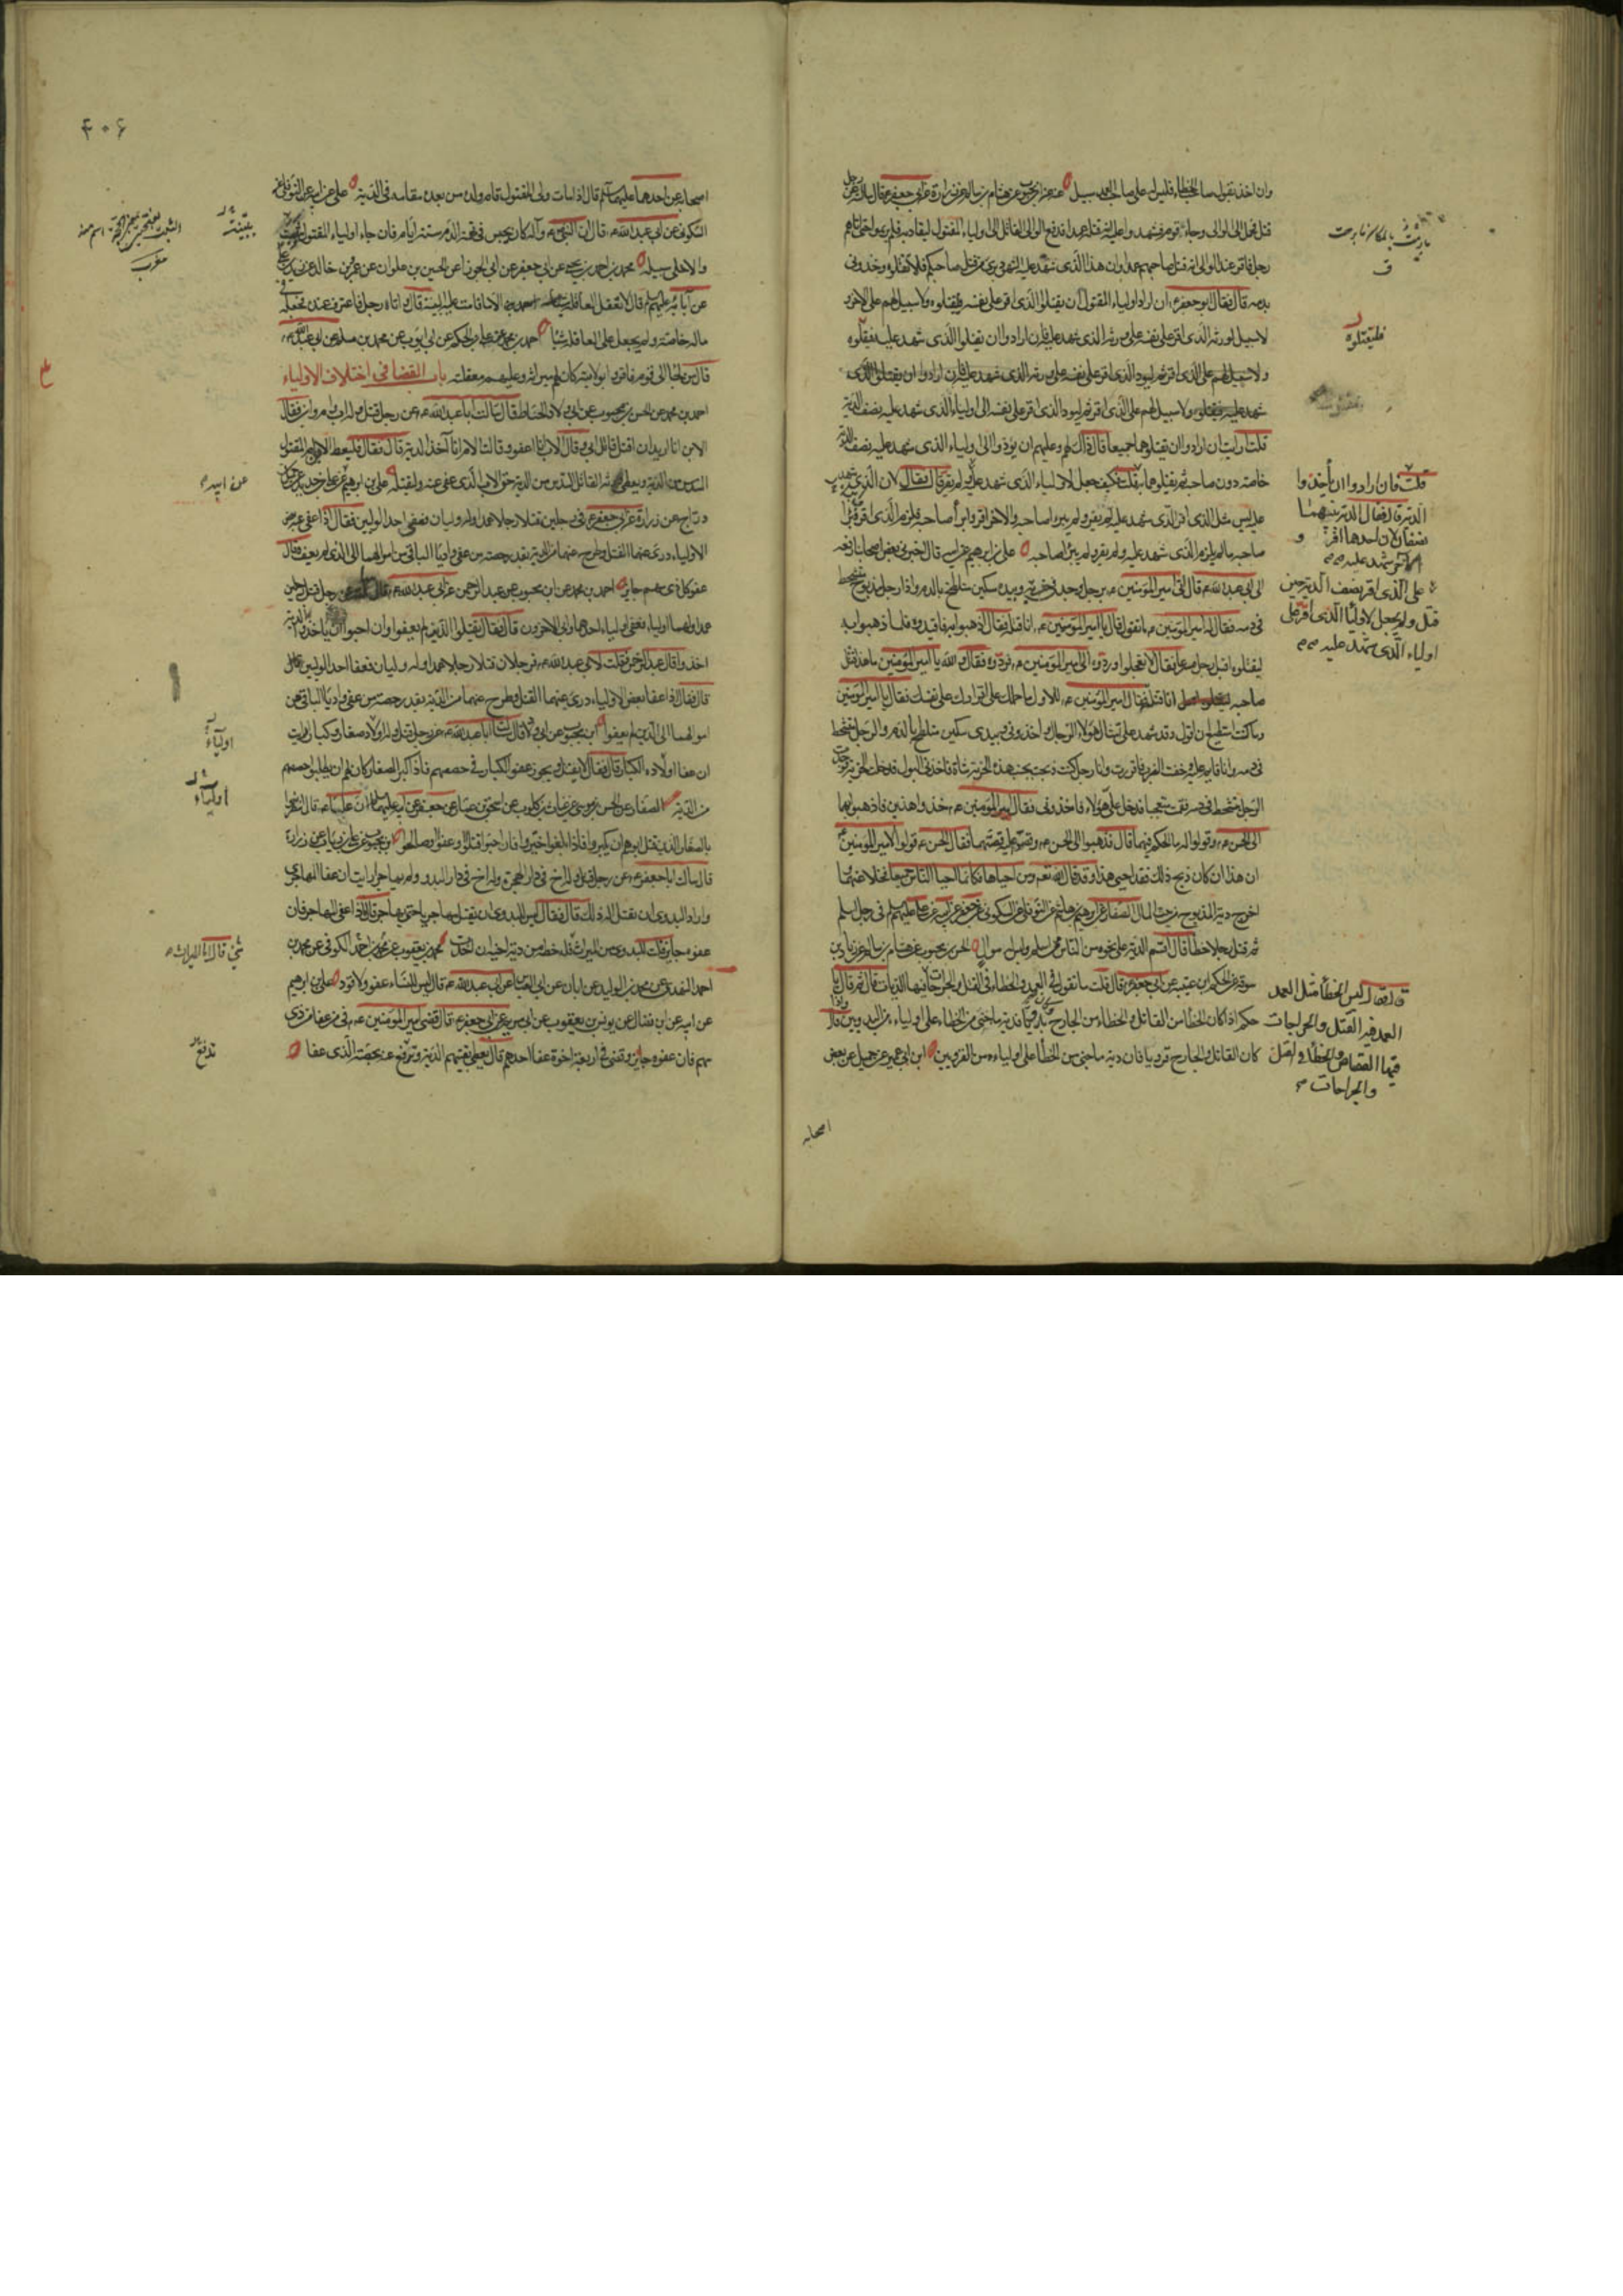 وان اخذ بقول صاحب الخطاء فليس له على صاحب العمد سبيل عنه عن ابن محبوب عن هشام بن سالم عن زرارة عن ابي جعفر ع قال سالته عن رجل
قتل فحمل الى الوالى وجاءه قوم فشهد واعليه انه قتله عمدا فدفع الوالى القاتل الى اولياء المقتول ليقاد به فلم يريموا حتى اتاهم
رجل فاقر عند الوالى انه قتل صاحبهم عمدا وان هذا الذى شهد عليه الشهود برى من قتل صاحبكم فلا تقتلوه وخذونى
بدمه قال فقال ابو جعفر ع ان اراد اولياء المقتول ان يقتلوا الذى اقر على نفسه فليقتلوه ولا سبيل لهم على الآخر و
لا سبيل لورثة الذى اقر على نفسه على ورثة الذى شهد عليه فان ارادوا ان يقتلوا الذى شهد عليه فيقتلوه
ولا سبيل لهم على الذى اقر ثم ليود الذى اقر على نفسه
شهد عليه ولا سبيل لهم على الذى اقر ثم ليود الذى اقر على نفسه الى اولياء الذى شهد عليه نصف الدية
قلت ارايت ان ارادوا ان يقتلوهما جميعا قال ذاك لهم وعليهم ان يودوا الى اولياء الذى شهد عليه نصف الدية
خاصة دون صاحبه ثم يقتلوهما قلت فكيف جعل لاولياء الذى شهد عليه ولم يقر قال فقال لان الذى شهد
عليه ليس مثل الذى اقر الذى شهد عليه لم يقر ولم يبرء صاحبه والآخر اقر وابرأ صاحبه فلزم الذى اقر وابرأ
صاحبه ما لم يلزم الذى شهد عليه ولم يقر ولم يبرئ صاحبه علي بن ابرهيم عن ابيه قال اخبرنى بعض اصحابنا رفعه
الى ابى عبد الله ع قال اتى امير المؤمنين ع برجل وجد فى خربة وبيده سكين ملطخ بالدم واذا رجل مذبوح يتشحط
فى دمه فقال له امير المؤمنين ع ما تقول قال يا امير المؤمنين ع انا قتلته قال اذهبوا به فاقيدوه فلما ذهبوا به
ليقتلوه اقبل رجل مسرعا فقال لا تعجلوا وردوه الى امير المؤمنين ع فردوه فقال والله يا امير المؤمنين ما هذا قتل
صاحبه انا قتلته فقال امير المؤمنين ع للاول ما حملك على اقرارك على نفسك فقال يا امير المؤمنين
وما كنت استطيع ان اقول وقد شهد على امثال هؤلاء الرجال واخذونى وبيدى سكين ملطخ بالدم والرجل يتشحط
فى دمه وانا قايم عليه وخفت الضرب فاقررت وانا رجل كنت ذبحت بجنب هذه الخربة شاة فاخذنى البول فدخلت الخربة فوجدت
الرجل يتشحط فى دمه فقمت متعجبا فدخل على هؤلاء فاخذونى فقال امير المؤمنين ع خذوا هذين فاذهبوا بهما
الى الحسن ع وقولوا له ما الحكم فيهما قال فذهبوا الى الحسن ع وقصوا عليه قصتهما فقال الحسن ع قولوا لامير المؤمنين ع
ان هذا ان كان ذبح ذلك فقد احيى هذا وقد قال الله تعه ومن احياها فكانما احيا الناس جميعا يخلا عنهما
اخرج دية المذبوح من بيت المال الصفار عن ابرهيم بن هاشم عن النوفلي عن السكونى عن جعفر عن ابيه عن علي عليهم السلم فى رجل اسلم
ثم قتل رجلا خطا قال اقسم الدية على نحوه من الناس ممن اسلم وليس له موال الحسن بن محبوب عن هشام بن سالم عن زياد بن
سوقة عن الحكم بن عتيبة عن ابى جعفر ع قال قلت ما تقول فى العمد والخطاء فى القتل والجراحات قال ثم قال يا
حكم اذا كان الخطا من القاتل والخطاء من الجارح وكان بدويا فدية ما جنى من الخطاء على اولياءه من البدويين قال
واذا كان القاتل والجارح قرويا فان دية ما جنى من الخطأ على اولياءه من القرويين ابن ابى عمير عن جميل عن بعض
اصحابه
فليقتلوه
قلت فان ارادوا ان يأخذوا
الدية قال فقال الدية بينهما
نصفان لان احدهما اقر و
الآخر شهد عليه
على الذى اقر نصف الدية حين
قتل ولم يجعل لاولياء الذى اقر على
اولياء الذى شهد عليه
قال فقال ليس الخطأ مثل العمد
العمد فيه القتل والجراحات
فيها القصاص والخطأ فى القتل
والجراحات
۴۰۶
اصحابه عن احدهما عليهما السلم قال اذا مات ولى المقتول قام ولده من بعده مقامه فى الدية علي عن ابيه عن النوفلى عن
السكونى عن ابى عبد الله ع قال ان النبى ص وآله كان يحبس فى تهمة الدم ستة ايام فان جاء اولياء المقتول
والا خلى سبيله محمد بن احمد بن يحيى عن ابى جعفر عن ابى الجوزاء عن الحسين بن علوان عن عمرو بن خالد عن زيد بن علي
عن آبائه عليهم السلم قال لا تعقل العاقلة الا ما قامت عليه البينة قال واتاه رجل فاعترف عنده فجعله فى
ماله خاصة ولم يجعل على العاقلة شيئا احمد بن محمد عن علي بن الحكم عن ابى ايوب عن محمد بن مسلم عن ابى عبد الله ع
قال من لجا الى قوم فاقروا بولايته كان لهم ميراثه وعليهم معقلته باب القضا فى اختلاف الاولياء
احمد بن محمد عن الحسن بن محبوب عن ابى ولاد الحناط قال سالت ابا عبد الله ع عن رجل قتل وله اب وام وابن فقال
الابن انا اريد ان اقتل قاتل ابى وقال الاب انا اعفو وقالت الام انا آخذ الدية قال فقال فليعط الابن ام المقتول
السدس من الدية ويعطى ورثة القاتل السدس من الدية حق الاب الذى عفى عنه وليقتله علي بن ابرهيم عن علي بن حديد عن جميل بن
دراج عن زرارة عن ابى جعفر ع فى رجلين قتلا رجلا عمدا وله وليان فعفى احد الوليين فقال اذا عفى عنهما بعض
الاولياء درى عنهما القتل وطرح عنهما من الدية بقدر حصة من عفى واديا الباقى من اموالهما الى الذى لم يعف وقال
عفو كل ذى سهم جايز احمد بن محمد عن ابن محبوب عن عبد الرحمن عن ابى عبد الله ع رجل قتل رجلين
عمدا ولهما اولياء فعفى اولياء احدهما وابى الآخرون قال فقال يقتل الذين لم يعفوا وان احبوا ان ياخذوا الدية
اخذوا قال عبد الرحمن فقلت لابى عبد الله ع فرجلان قتلا رجلا عمدا وله وليان فعفا احد الوليين
قال فقال اذا عفا بعض الاولياء درى عنهما القتل وطرح عنهما من الدية بقدر حصة من عفى واديا الباقى من
اموالهما الى الذين لم يعفوا ابن محبوب عن ابى ولاد قال سالت ابا عبد الله ع عن رجل قتل وله اولاد صغار وكبار ارايت
ان عفا اولاده الكبار قال فقال لا يقتل ويجوز عفو الكبار فى حصصهم فاذا كبر الصغار كان لهم ان يطلبوا حصصهم
من الدية الصفار عن الحسن بن موسى عن غياث بن كلوب عن اسحق بن عمار عن جعفر عن ابيه عليهما السلم ان عليا ع قال انتظروا
بالصغار الذين قتل ابوهم ان يكبروا فاذا بلغوا خيروا فان احبوا قتلوا او عفوا او صالحوا ابن محبوب عن علي بن رئاب عن زرارة
قال سالت ابا جعفر ع عن رجل قتل وله اخ فى دار الهجرة وله اخ فى دار البدو ولم يهاجر ارايت ان عفا المهاجرى
واراد البدوى ان يقتل اله ذلك قال فقال ليس للبدوى ان يقتل مهاجريا حتى يهاجر قال اذا عفى المهاجر فان
عفوه جايز قلت للبدوى من الميراث قال فله حظه من دية اخيه ان اخذت محمد بن يعقوب عن محمد بن احمد الكوفى عن محمد بن
احمد النهدى عن محمد بن الوليد عن ابان عن ابى العباس عن ابى عبد الله ع قال ليس للنساء عفو ولا قود علي بن ابرهيم
عن ابيه عن ابن فضال عن يونس بن يعقوب عن ابى مريم عن ابى جعفر ع قال قضى امير المؤمنين ع فى من عفا من ذى
سهم فان عفوه جايز وقضى فى اربعة اخوة عفا احدهم قال يعطى بقيتهم الدية ويرفع عنه بحصة الذى عفا
ببينة
عن ابيه
اولياء
اولياء
شئ قال اما الميراث
تدفع